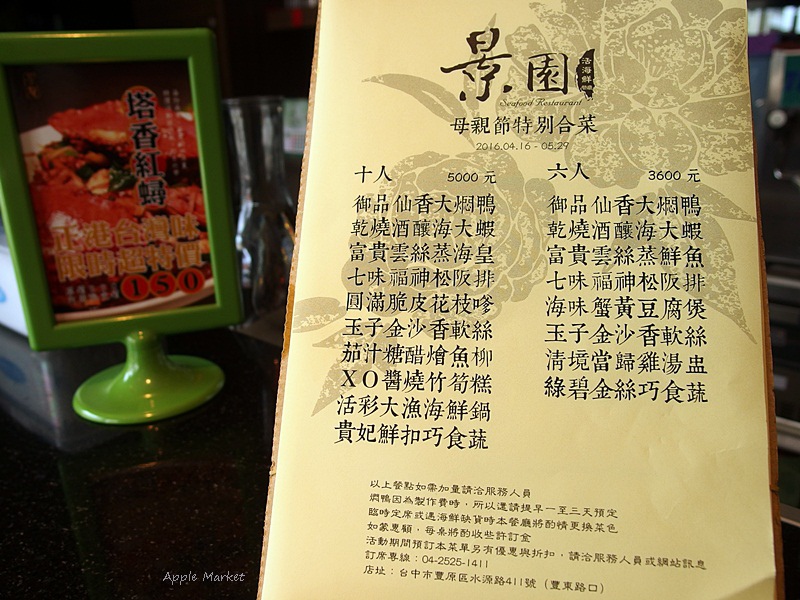 景園
活海鮮
Seafood Restaurant
母親節特別合菜
2016.04.16 - 05.29
十人 5000 元
御品仙香大焖鴨
乾燒酒釀海大蝦
富貴雲絲蒸海皇
七味福神松阪排
圓滿脆皮花枝嗲
玉子金沙香軟絲
茄汁糖醋燴魚柳
XO醬燒竹筍糕
活彩大漁海鮮鍋
貴妃鮮扣巧食蔬
六人 3600 元
御品仙香大焖鴨
乾燒酒釀海大蝦
富貴雲絲蒸鮮魚
七味福神松阪排
海味蟹黃豆腐煲
玉子金沙香軟絲
清境當歸雞湯盅
綠碧金絲巧食蔬
以上餐點如需加量請洽服務人員
焖鴨因為製作費時，所以還請提早一至三天預定
臨時定席或遇海鮮缺貨時本餐廳將酌情更換菜色
如蒙惠顧，每桌將酌收些許訂金
活動期間預訂本菜單另有優惠與折扣，請洽服務人員或網站訊息
訂席專線：04-2525-1411
店址：台中市豐原區水源路411號（豐東路口）
塔香紅蟳
正港台灣味
限時超特價
150
Apple Market